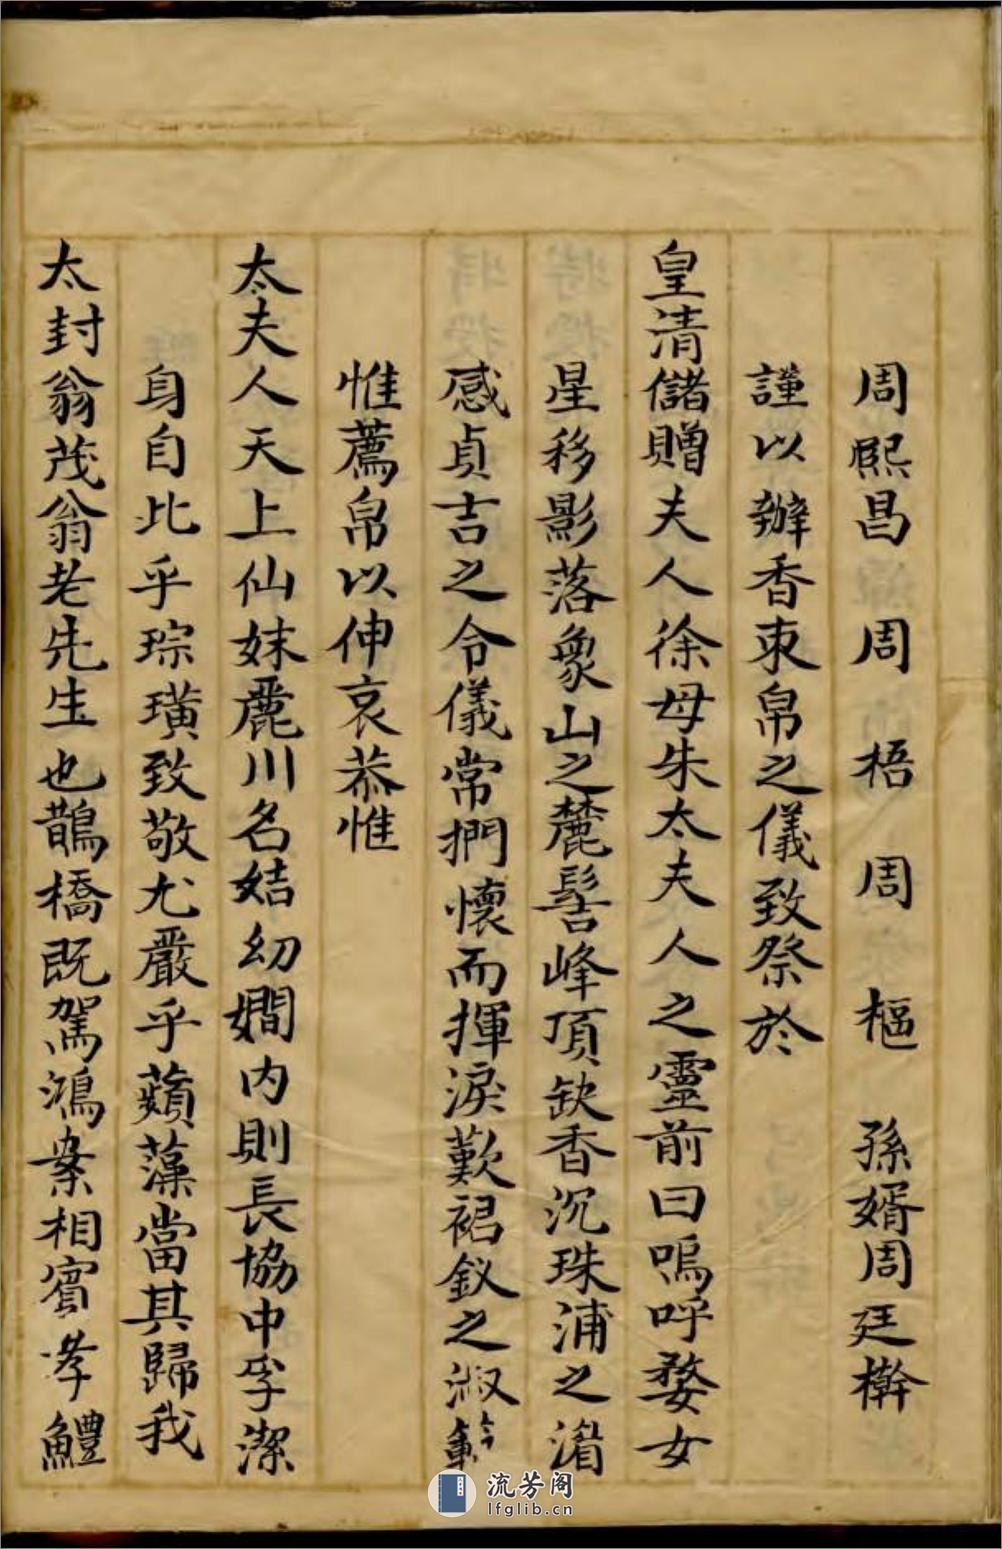 周熙昌周梧周樞孫婿周廷檊
謹以辦香束帛之儀致祭於
皇清儲贈夫人徐母朱太夫人之靈前曰嗚呼婺女
星移影落象山之麓髻峰頂缺香沉珠浦之湄
感貞吉之令儀常捫懷而揮淚歎裙釵之淑
惟薦帛以伸哀恭惟
太夫人天上仙妹麗川名姞幼嫺内則長協中孚潔
身自比乎琮璜致敬尤嚴乎蘋藻當其歸我
太封翁茂翁老先生也鵲橋既駕鴻案相賓孝鱧
流芳阁
lfglib.cn